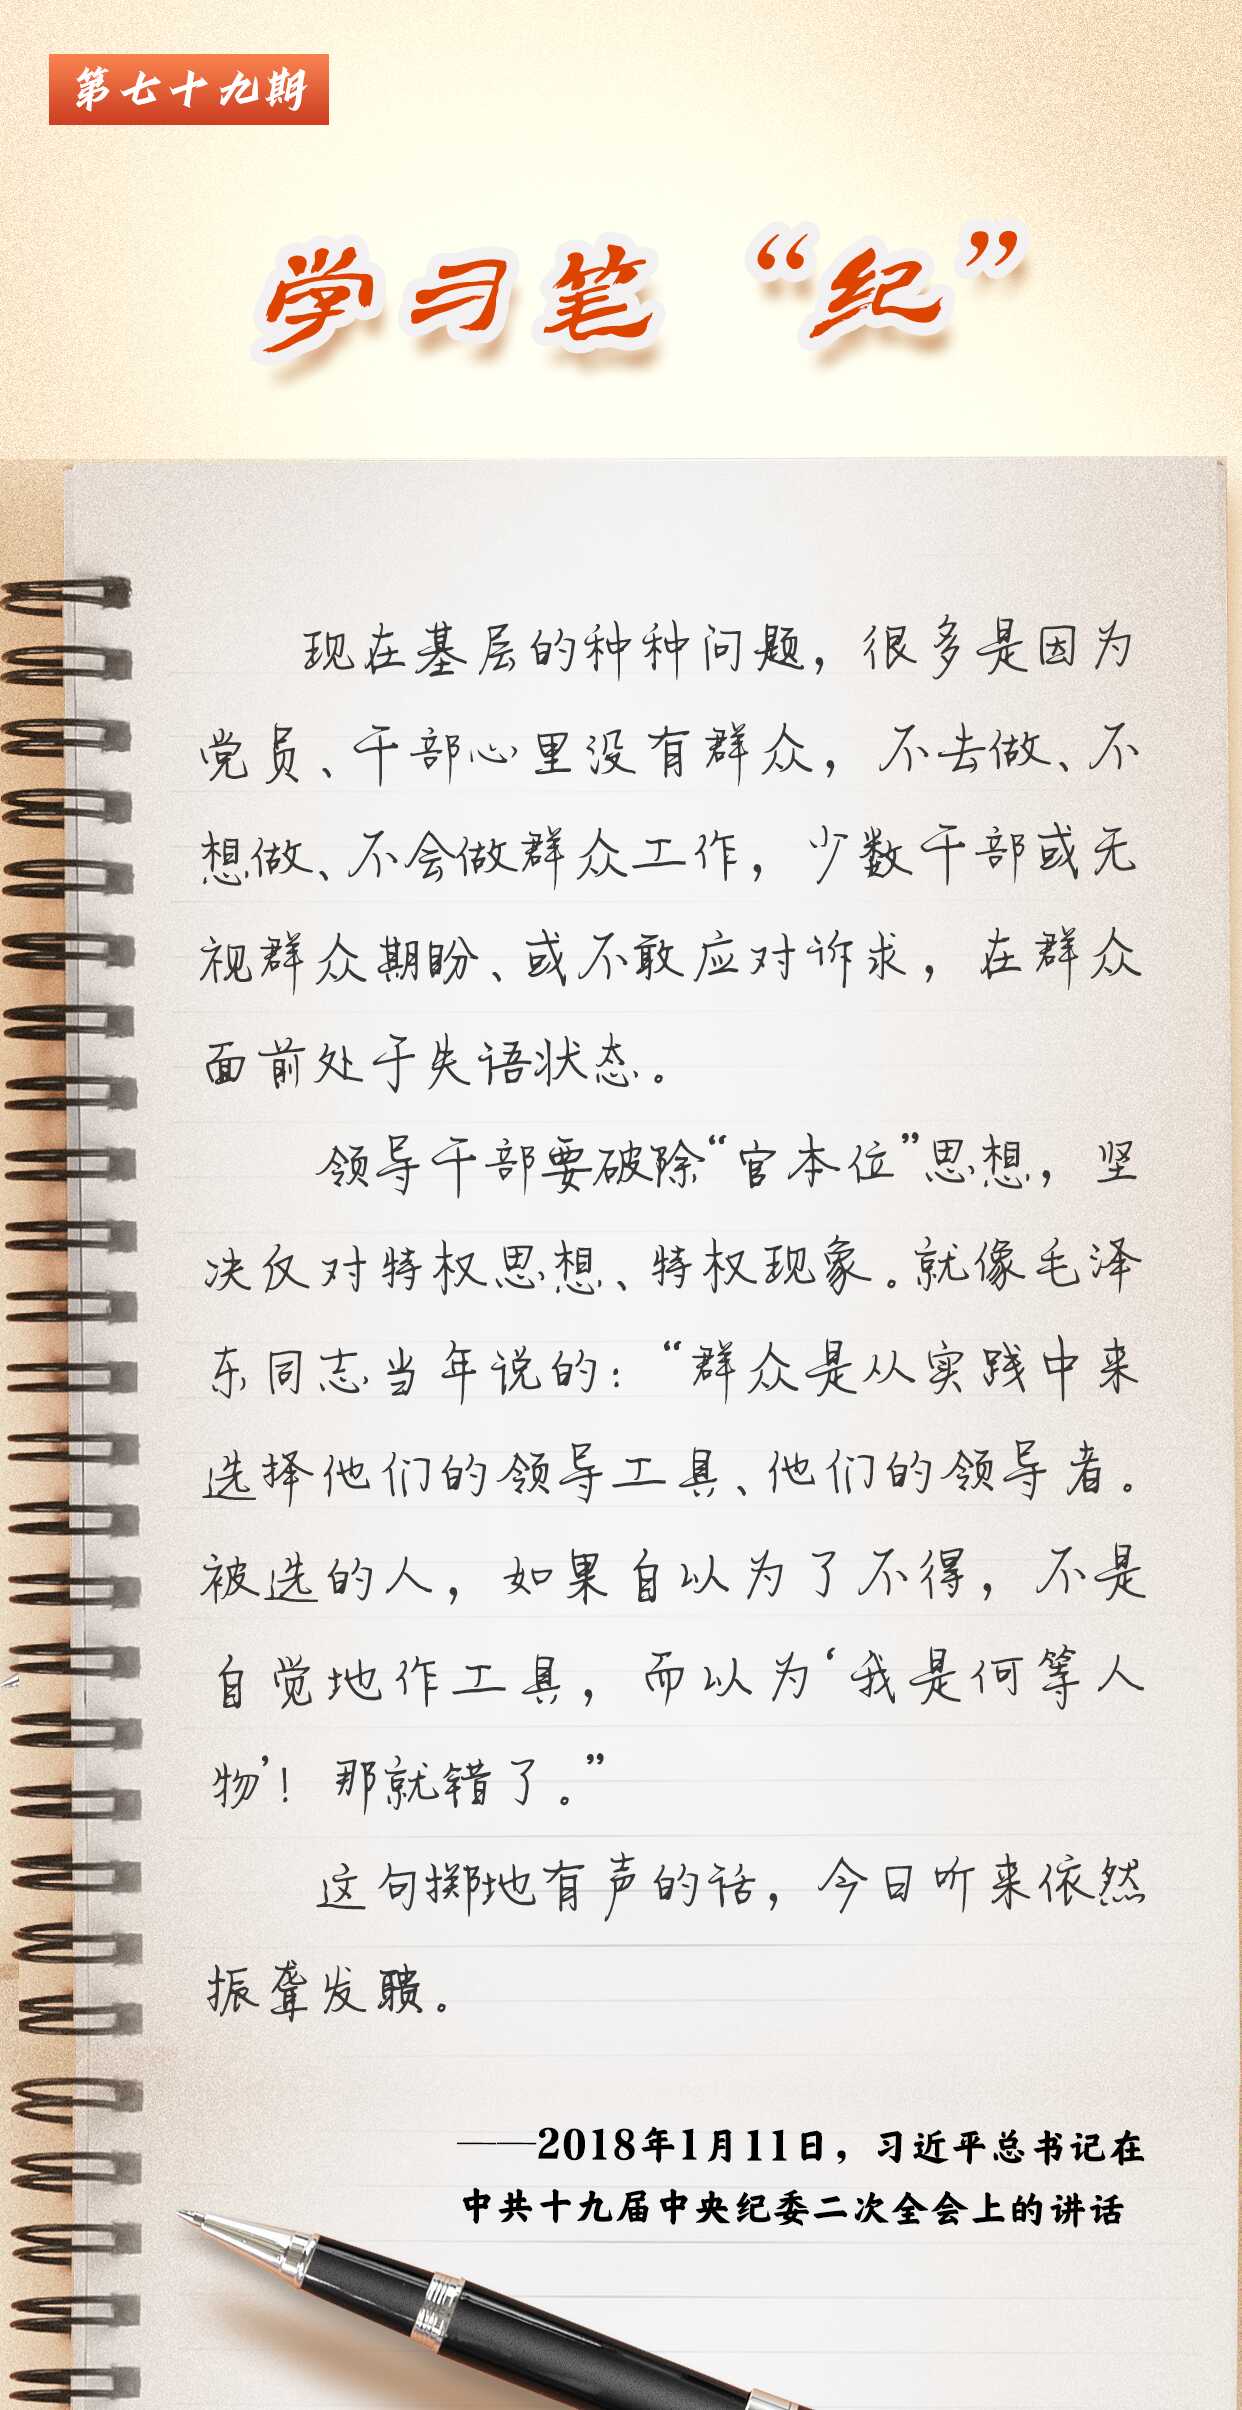 第七十九期
学习笔“纪”
现在基层的种种问题，很多是因为
党员、干部心里没有群众，不去做、不
想做、不会做群众工作，少数干部或无
视群众期盼、或不敢应对诉求，在群众
面前处于失语状态。
领导干部要破除“官本位”思想，坚
决反对特权思想、特权现象。就像毛泽
东同志当年说的：“群众是从实践中来
选择他们的领导工具、他们的领导者。
被选的人，如果自以为了不得，不是
自觉地作工具，而以为‘我是何等人
物’！那就错了。”
这句掷地有声的话，今日听来依然
振聋发聩。
——2018年1月11日，习近平总书记在
中共十九届中央纪委二次全会上的讲话